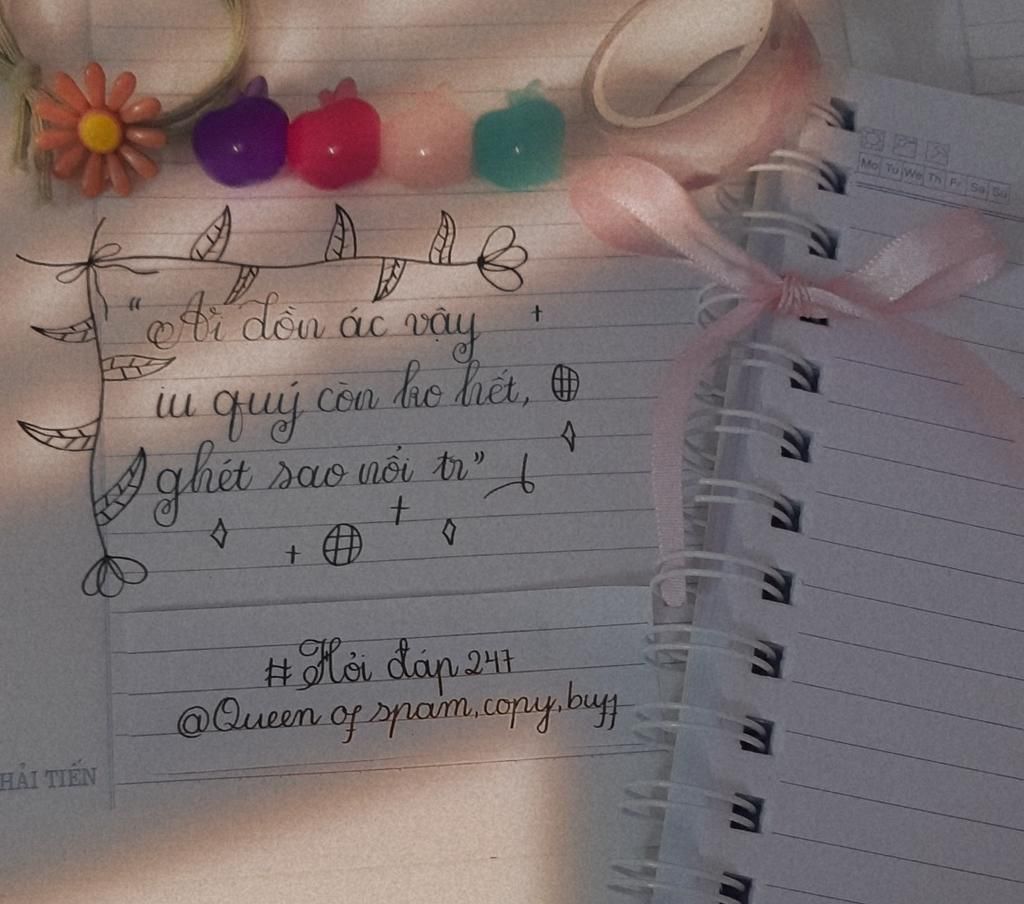 Mo Tu We Th Fr Sa Su
“Ai dồn ác vậy
iu quý còn ko hết,
ghét sao nổi tr”
#Hỏi đáp 247
@Queen of spam,copy,buff
HẢI TIẾN